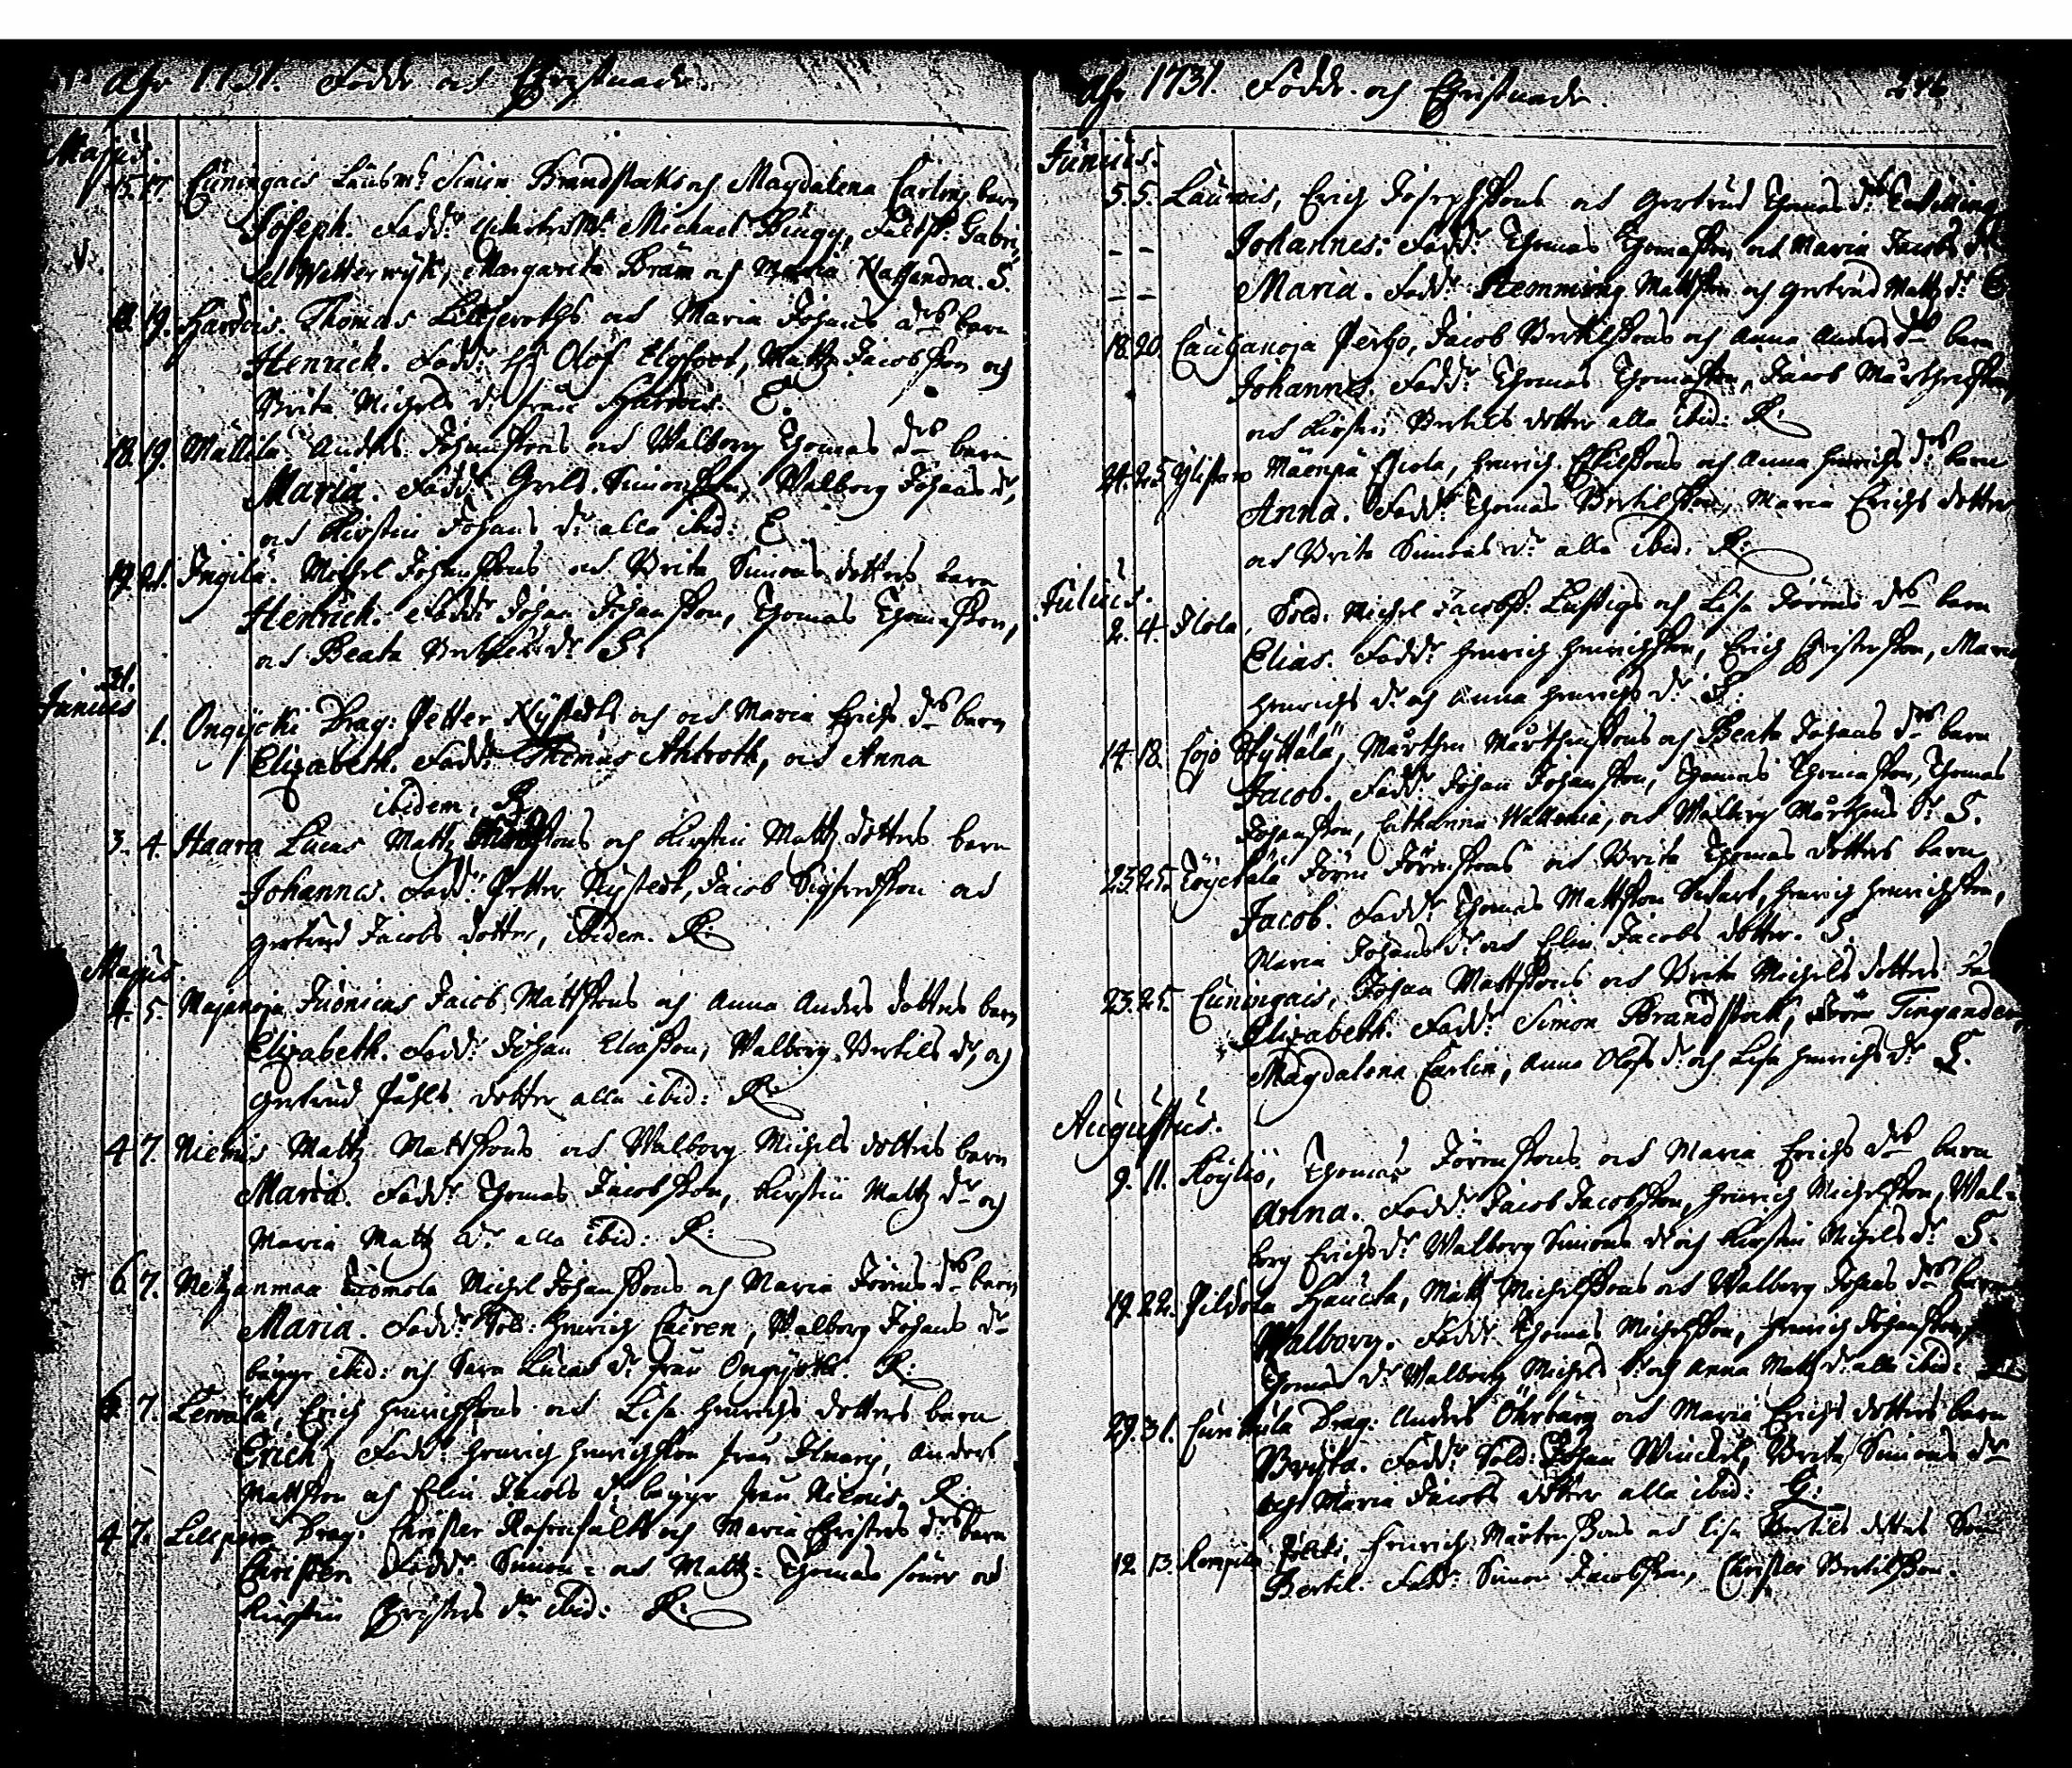 Åhr 1731. Födde och Christnade.
Majus.
15. 17. Cuningais Länsm: Simon Brandstaks och Magdalena Carlins barn
Joseph. Fadd: Michael Bingg, Gabri
el Wetterwyk, Margareta Bräm och Maria S.
18. 19. Harois. Thomas och Maria Johans d:rs barn
Henrich. Fadd: Hr Olof, Matts Jacobsson och
Brita Michels d:r från Harois. E.
18. 19. Mällilä. Anders Johanssons och Walborg Thomas d:rs barn
Maria. Fadd: Simonsson, Walborg Johans d:r,
och Kirstin Johans d:r alla ibid: E.
19. 21. Ingilä. Michel Johanssons och Brita Simons dotters barn
Henrich. Fadd: Johan Johansson, Thomas Thomasson,
och Beata Bertils d:r S.
31.
Junius
1. Ongycki Drag: Petter Nystedts och Maria Erichs d:rs barn
Elizabeth. Fadd: Thomas Ahlroth, och Anna
ibidem, R.
3. 4. Haara Lucas Matts sons och Kirstin Matts dotters barn
Johannes. Fadd: Petter Nystedt, Jacob Sigfredsson och
Gertrud Jacobs dotter, ibidem. R.
Majus.
4. 5. Majanoja Juonicas Jacob Mattssons och Anna Anders dotters barn
Elizabeth. Fadd: Johan Eliasson, Walborg Bertils d:r, och
Gertrud Påhls dotter alla ibid: R.
4 7. Niemis Matts Mattssons och Walborg Michels dotters barn
Maria. Fadd: Thomas Jacobsson, Kirstin Matts d:r och
Maria Matts d:r alla ibid: R.
6. 7. Metzänmaa Tuomola Michel Johanssons och Maria Jörens d:rs barn
Maria. Fadd: Sold: Henrich Cairen, Walborg Johans d:r
bägge ibid: och Sara Lucas d:r från Ongycki. R.
6. 7. Lewälä, Erich Henrichssons och Lisa Henrichs dotters barn
Erich. Fadd: Henrich Henrichsson från Ilmarj, Anders
Mattsson och Elin Jacobs d:r bägge från Niemis. R.
4 7. Lillperä Drag: Christer Rosenfält och Maria Christers d:rs barn
Christer. Fadd: Simon- och Matts- Thomas söner och
Kirstin Christers d:r ibid: R.
Åhr 1731. Födde och Christnade. 246
Junius.
5. 5. Laurois, Erich Josephssons och Gertrud Thomas d:r
- - Johannes: Fadd: Thomas Thomasson och Maria Jacobs d:r
- - Maria. Fadd: Hemming Mattsson och Gertrud Matts d:r E
18. 20. Cauhanoja Perho, Jacob Bertilssons och Anna Anders d:rs barn
Johannes. Fadd: Thomas Thomasson, Jacob Mårthensson,
och Kirstin Bertils dotter alla ibid: R.
24. 25. Ylistaro Mäenpä Eskola, Henrich Eskilssons och Anna Henrichs d:rs barn
Anna. Fadd: Thomas Bertilsson, Maria Erichs dotter
och Brita Simons d:r alla ibid: R.
Julius.
2. 4. Ilola, Sold: Michel Jacobss: Lustigs och Lisa Jörens d:rs barn
Elias. Fadd: Henrich Henrichsson, Erich Christersson, Maria
Henrichs d:r och Anna Henrichs d:r S.
14. 18. Cojo Kyttälä, Mårthen Mårthenssons och Beata Johans d:rs barn
Jacob. Fadd: Johan Johansson, Thomas Thomasson, Thomas
Johansson, Catharina Wallenia, och Walborg Mårthens d:r S.
23. 25. Töyckälä Jören Jörenssons och Brita Thomas dotters barn
Jacob. Fadd: Thomas Mattsson, Henrich Henrichsson,
Maria Johans d:r och Elin Jacobs dotter. S.
23. 25. Cuningais, Johan Mattssons och Brita Michels dotters
Elizabeth. Fadd: Simon Brandstak, Jören Tingander,
Magdalena Carlin, Anna Olofs d:r och Lisa Henrichs d:r S.
Augustus.
9. 11. Köyliö, Thomas Jörenssons och Maria Erichs d:rs barn
Anna. Fadd: Jacob Jacobsson, Henrich Michelsson, Wal-
borg Erichs d:r Walborg Simons d:r och Kirstin Michels d:r S.
19. 22. Pildola Haucka, Matts Michelssons och Walborg Johans d:rs barn
Walborg. Fadd: Thomas Michelsson, Henrich Johansson,
Thomas d:r Walborg Michels d:r och Anna Matts d:r alla ibid:
29. 31. Cunikula Drag: Anders Öhrbärg och Maria Erichs dotters barn
Brita. Fadd: Sold: Johan Winckel, Brita Simons d:r
och Maria Jacobs dotter alla ibid: G:
12. 13. Kempilä, Henrich Mårtenssons och Lisa Bertils dotters Son
Bertil. Fadd: Simon Jacobsson, Christer Bertilsson.